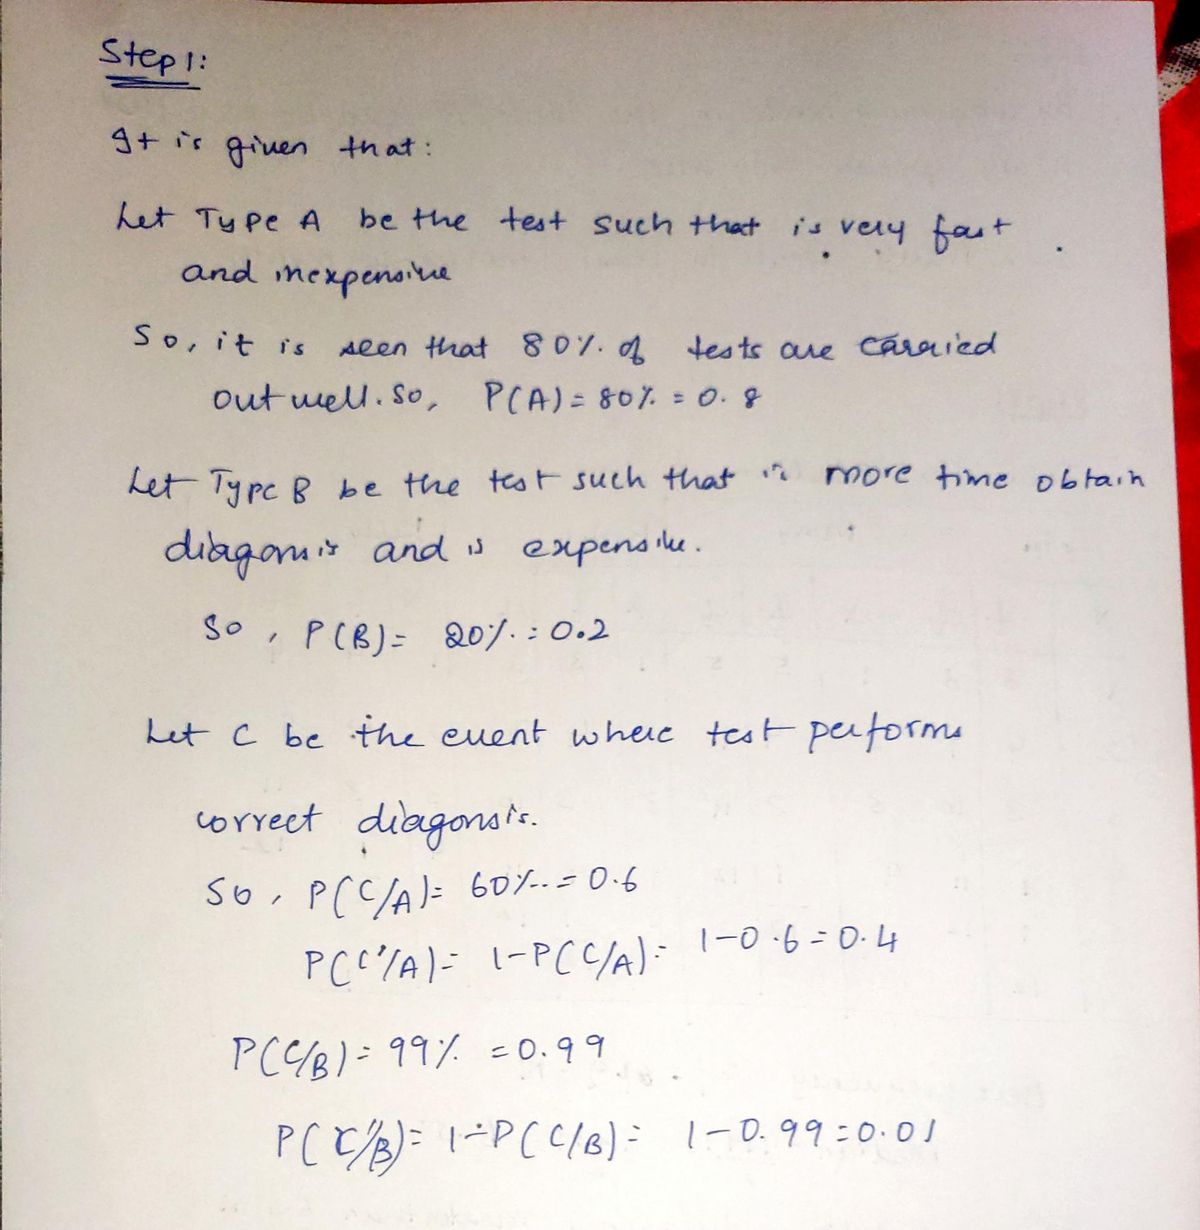 Step 1:
It is given that:
Let Type A be the test such that is very fast
and inexpensive
So, it is seen that 80% of tests are carried
out well. So, P(A) = 80% = 0.8
Let Type B be the test such that is more time obtain
diagonsis and is expensive.
So, P(B) = 20% = 0.2
Let C be the event where test performs
correct diagonsis.
So, P(C/A) = 60% = 0.6
P(C'/A) = 1-P(C/A) = 1-0.6 = 0.4
P(C/B) = 99% = 0.99
P(C'/B) = 1-P(C/B) = 1-0.99 = 0.01